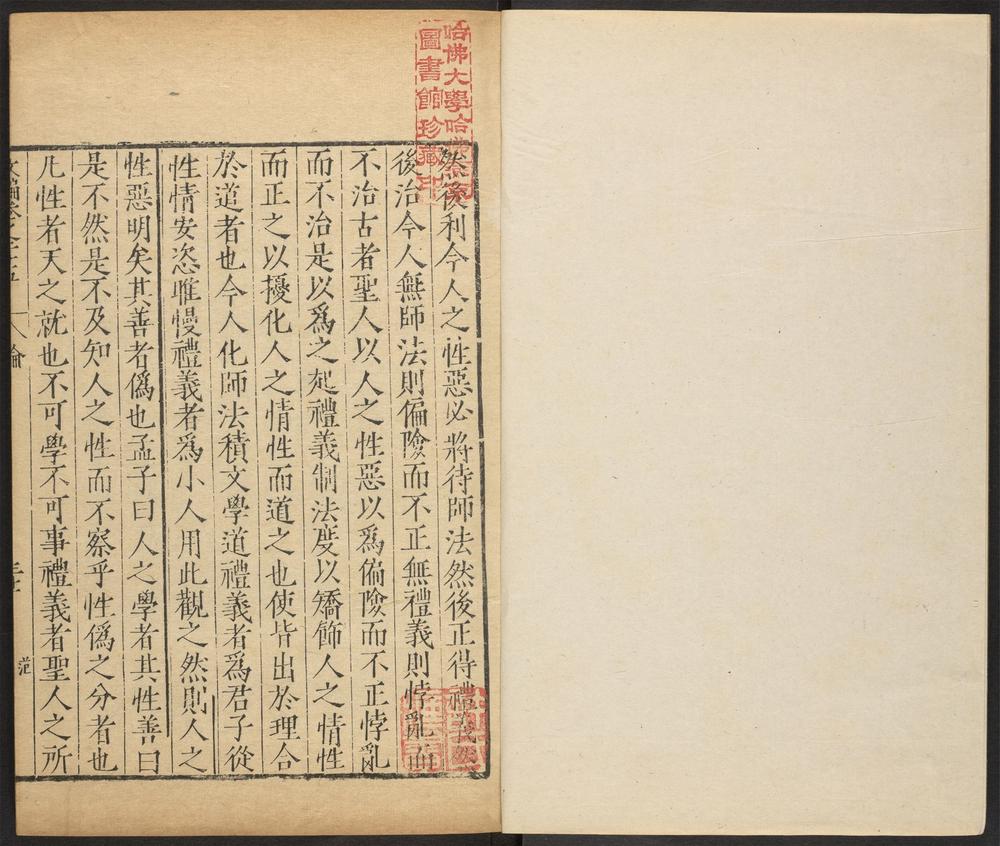 然後利今人之性惡必將待師法然後正得禮義然
後治今人無師法則偏險而不正無禮義則悖亂而
不治古者聖人以人之性惡以爲偏險而不正悖亂
而不治是以爲之起禮義制法度以矯飾人之情性
而正之以擾化人之情性而道之也使皆出於理合
於道者也今人化師法積文學道禮義者爲君子從
性情安恣睢慢禮義者爲小人用此觀之然則人之
性惡明矣其善者偽也孟子曰人之學者其性善曰
是不然是不及知人之性而不察乎性偽之分者也
凡性者天之就也不可學不可事禮義者聖人之所
論
范
哈佛大學哈佛
圖書館珍藏印